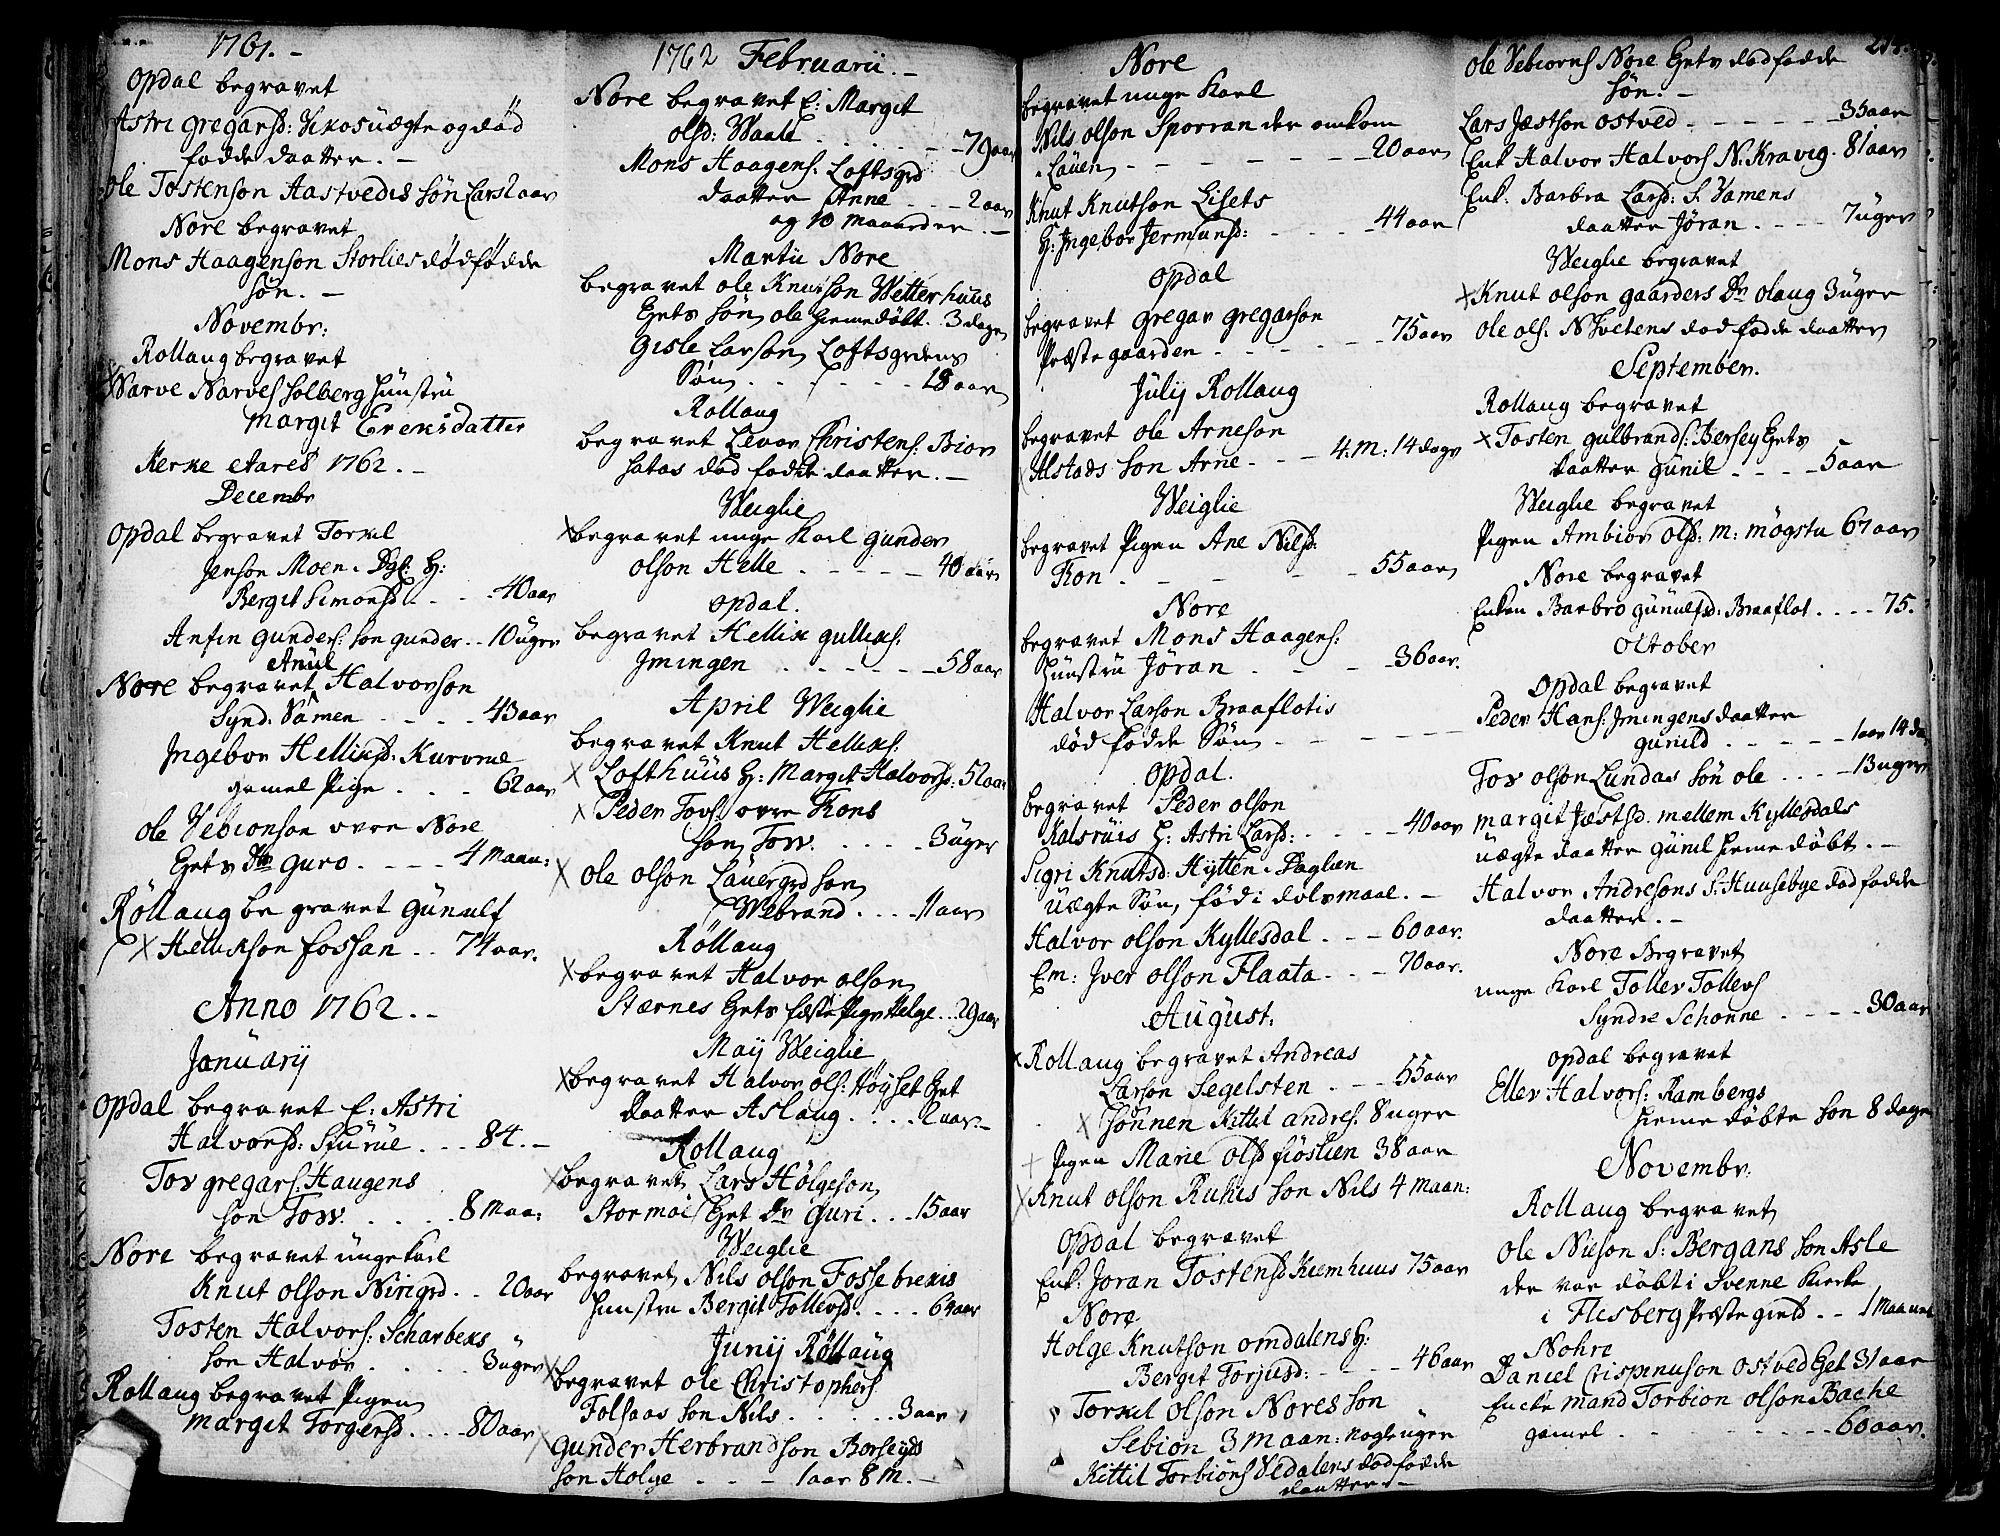 1761. -
Opdal begravet
Astri gregarsd: Skosuægte og död
fødde daatter. -
Ole Tostenson Aastvedts sön Lars 2 aar
Nore begravet
Mons Haagenson Storlies dödfødde
sön. -
Novembr:
Rollaug begravet
Narve Narves Solberg hustru
Margit Ereksdatter
Kerke Aared 1762. -
Decembr
Opdal begravet Torkel
Jenson Moen. Dgl: H:
Bergit Simonsd. . . 40 aar
Anfin gunders: son gunder . . 10 uger
Anul
Nore begravet Halvorson
Synd. Våmen - - - - 43 aar
Ingebor Helliksd: Kurvrue
gamel Pige . . . 62 aar
Ole Vebionson øvre Nore
Gets Dr guro. - - - - 4 Maan:
Rollaug begravet Gunulf
X Hellikson Fossan . . 74 aar.
Anno 1762. -
Januarij
Opdal begravet E: Astri
Halvorsd: Skurue . . . 84. -
Tov gregars: Haugens
son Tow. . . . . 8 Maa:
Nore begravet unge Karl
Knut Olson Nirigrd. . 20 aar
Tosten Halvors: Scharbeks
son Halvor . . . . 3 uger
Rollaug begravet Pigen
Margit Torgersd. . . 80 aar
1762 Februarii. -
Nore begravet E: Margit
olsd: Waale . . . . . - - 79 aar
Mons Haagens. Loftsgrd
daatter Anne - - - 2 aar
og 10 maaneder. -
Martii Nore
begravet ole Knutson Wetterhuus
Gets Søn ole hiemedöbt. 3 dage
Gisle Larson Loftsgrdens
Søn. . . . . - - 18 aar
Rollaug
begravet Levor Christens: Bior
satas død fødde daatter. -
Weiglie
X begravet unge Karl gunder
olson Helle . - - - - 40 aar
Opdal.
begravet Hellik gulliks:
Imingen . - . - - - 58 aar
April Weiglie
begravet Knut Helliks:
X Lofthuus H: Margit Halvorsd: 52 aar
X Peder Tovs: øvre Kons
son Tow. . . . . 3 uger
X Ole olson Lauergrd son
Webrand. . . . 11 aar
Rollaug
X begravet Halvor olson
Stærnes Gets fæste Pige Helge . . 29 aar
Maij Weiglie
X begravet Halvor ols: Höyset Get
daatter Aslaug. . . . 2 aar. -
Rollaug
X begravet Lars Holgeson
Stormoi Get Dr Guri . . . 15 aar
Weiglie
begravet Nils olson Fossebrekis
hustru Bergit Tollevsd. . . . 64 aar
Junij Rollaug
X begravet ole Christophers:
Folsaas son Nils . . . . . 3 aar
Gunder Herbrandson Borseyds
son Holge - - - 1 aar 8 M. -
Nore
begravet unge Karl
Nils Olson Sporran der omkom
. Lauen - - - - - - - 20 aar
Knut Knutson Lisets
H: Ingebor Jermunsd: - - - - 44 aar
Opdal
begravet Gregar gregarson
Præstegaarden . - - - - - 75 aar
Julij Rollaug
begravet ole Arneson
Alstads son Arne. - - 4: M: 14 dage
Weiglie
begravet Pigen Ane Nilsd:
Kon . - - - - - 55 aar
Nore
begravet Mons Haagens:
Hustru Jöran . - - - - 36 aar.
Halvor Larson Braaflotis
död fødde Søn - - - - - -
Opdal.
begravet Peder olson
Kalsruis H: Astri Larsd: - - - - 40 aar
Sigri Knutsd: Hytten. Daglien
uægte Søn, född i dølsmaal. -
Halvor olson Kyllesdal . - - 60 aar.
Em: Iver olson Flaata. - - - 70 aar.
August.
X Rollaug begravet Andreas
Larson Segelsten . - - - 55 aar
X Sonnen Kittil andres: 8 uger
+ Pigen Marie olsd fiöslien 38 aar
X Knut olson Rukis son Nils 4 Maan:
Opdal begravet
Enk: Joran Tostensd Kiemhuus 75 aar
Nore
Holge Knutson omdalens H:
Bergit Torjusd: - - - 46 aar
Torkil Olson Nores son
Sebion 3 Maan: nogle uger
Kittil Torbiörns Vedalens dødfødde
daatter. -
214.
Ole Vebiorns Nore Gets dødfødde
sön. -
Lars Jæstson Ostved. - - - - - 35 aar
Enk. Halvor Halvors N. Kravig. 81 aar
Enk. Barbra Larsd: S. Vamens
daatter Jöran . - - - - 7 uger
Weiglie begravet
X Knut olson gaarders Dr Olaug 3 uger
Ole ols: N. Tvetens dødfødde daatter
September.
Rollaug begravet
X Tosten gulbrands: Bersey Gets
daatter Gunil - - - - 5 aar
Weiglie begravet
Pigen Ambior olsd: M: mögstu 67 aar
Nore begravet
Enken Barbro gunulfsd: Braaflot . . . . 75.
October
Opdal begravet
Peder Hans: Imingens daatter
gunild . . - - - - 1 aar 14 da
Tov olson Lundas Søn ole . . . - 13 uger
Margit Jæstsd. mellem Kyllesdals
uægte daatter Gunil hieme döbt. -
Halvor Andresons S: Huusebye dødfødde
daatter. -
Nore Begravet
unge Karl Tollev Tollevs
Syndre Schonne - - - - 30 aar
Opdal begravet
Ellev Halvors: Rambergs
hieme döbte son 8 dage
Novembr:
Rollaug begravet
Ole Nilson S: Bergans son Asle
der var döbt i Svenne Kirke
i Flesberg Præstegield. . - 1 Maanet
Nohre
Daniel Crispinuson Ostved Get 31 aar
Encke mand Torbion olson Bakke
gamel - - - - - - - 60 aar.